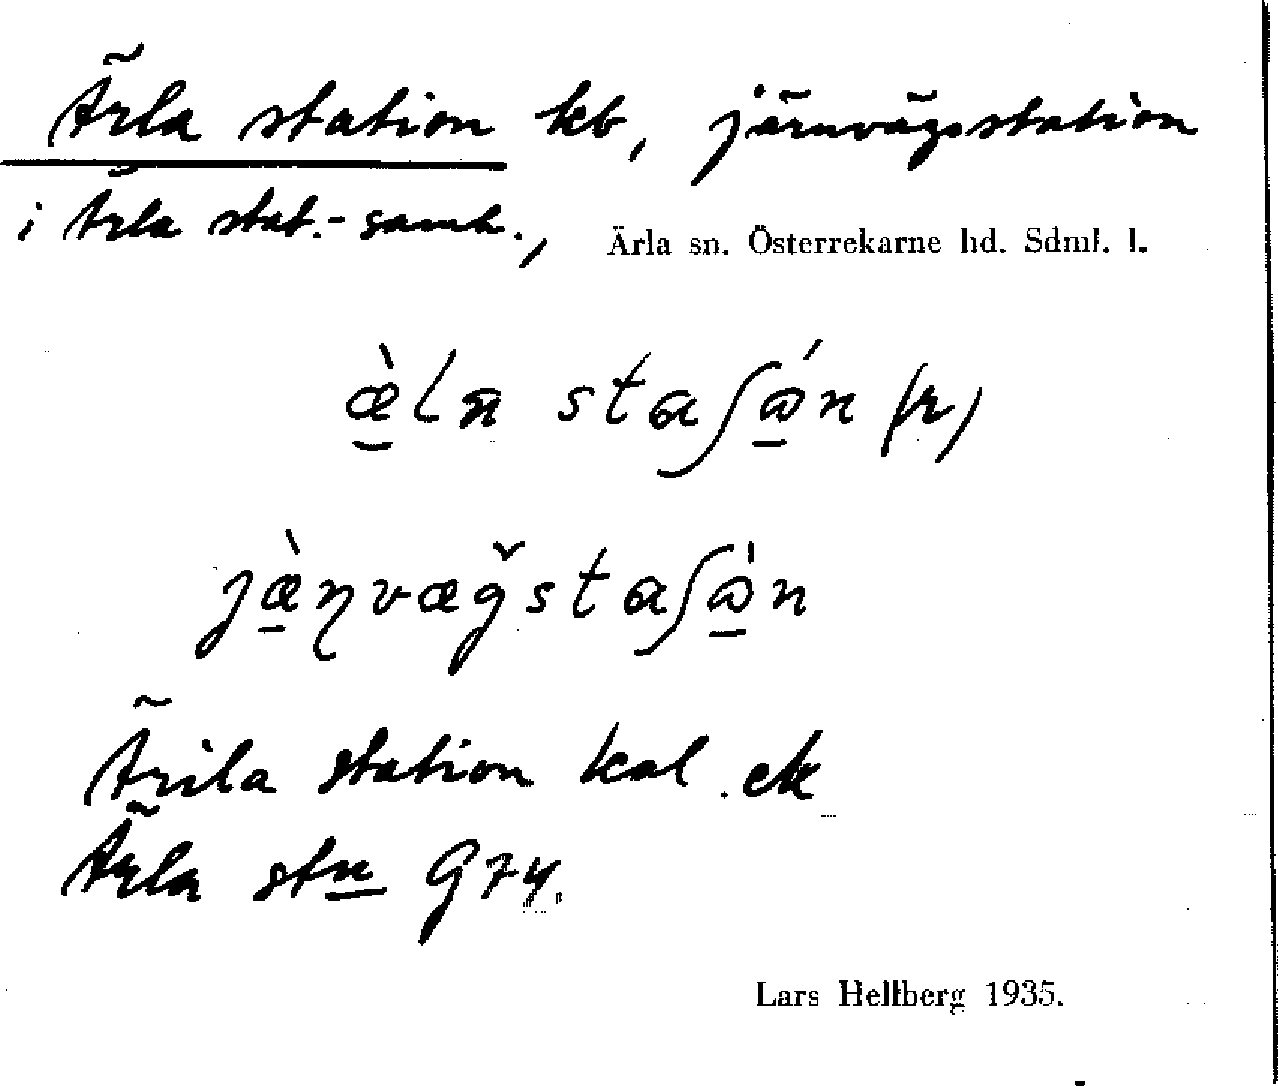 Ärla station kb, järnvägsstation
i Ärla stat.-samh.,
Ärla sn. Österrekarne hd. Sdml. l.
æ̀la staʃɷ́n (r)
jæ̀ɳvæǧstaʃɷ́n
Ärila station kal. ek
Ärla stn G74.
Lars Hellberg 1935.